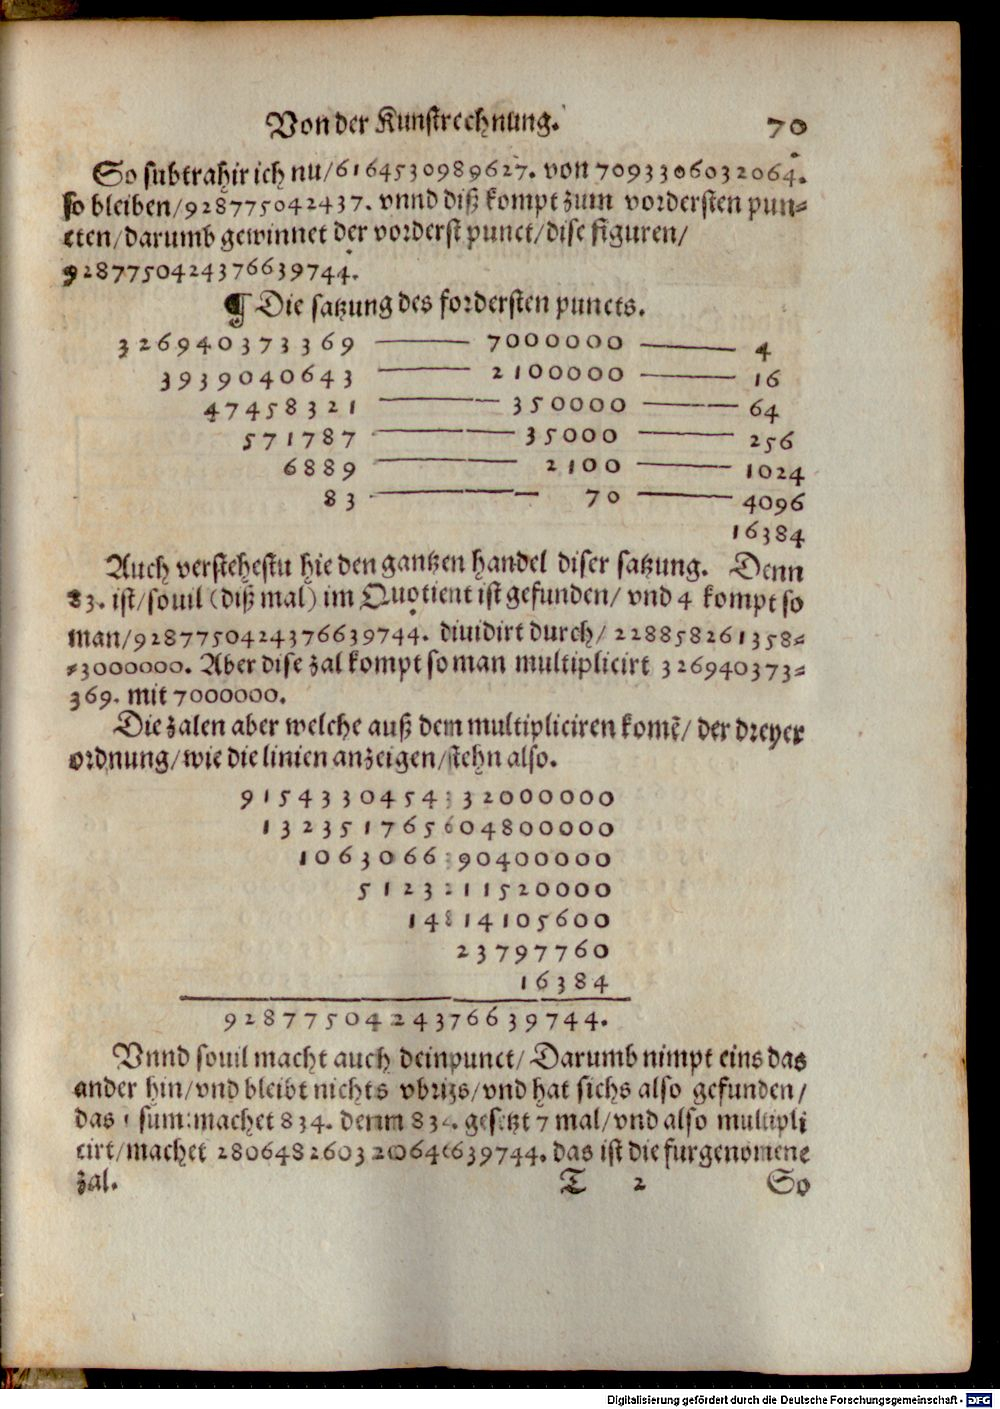 Von der Kunstrechnung. 70
So subtrahir ich nu/6164530989627. von 7093306032064.
so bleiben/928775042437. vnnd diß kompt zum vordersten pun-
cten/darumb gewinnet der vorderst punct/dise figuren/
9287750424376639744.
¶ Die satzung des fordersten puncts.
326940373369 7000000 4
3939040643 2100000 16
47458321 350000 64
571787 35000 256
6889 2100 1024
83 70 4096
16384
Auch verstehestu hie den gantzen handel diser satzung. Denn
83. ist/souil (diß mal) im Quotient ist gefunden/ vnd 4 kompt so
man/9287750424376639744. diuidirt durch/ 228858261358=
=3000000. Aber dise zal kompt so man multiplicirt 326940373=
369. mit 7000000.
Die zalen aber welche auß dem multipliciren komẽ/ der dreyer
ordnung/wie die linien anzeigen/stehn also.
9154330454332000000
132351765604800000
1063066390400000
5123211520000
14814105600
23797760
16384
9287750424376639744.
Vnnd souil macht auch dein punct/ Darumb nimpt eins das
ander hin/vnd bleibt nichts vbrigs/vnd hat sichs also gefunden/
das sum machet 834. denn 834. gesetzt 7 mal/vnd also multipli
cirt/machet das ist die furgenomene
zal. T 2 So
Digitalisierung gefördert durch die Deutsche Forschungsgemeinschaft - DFG